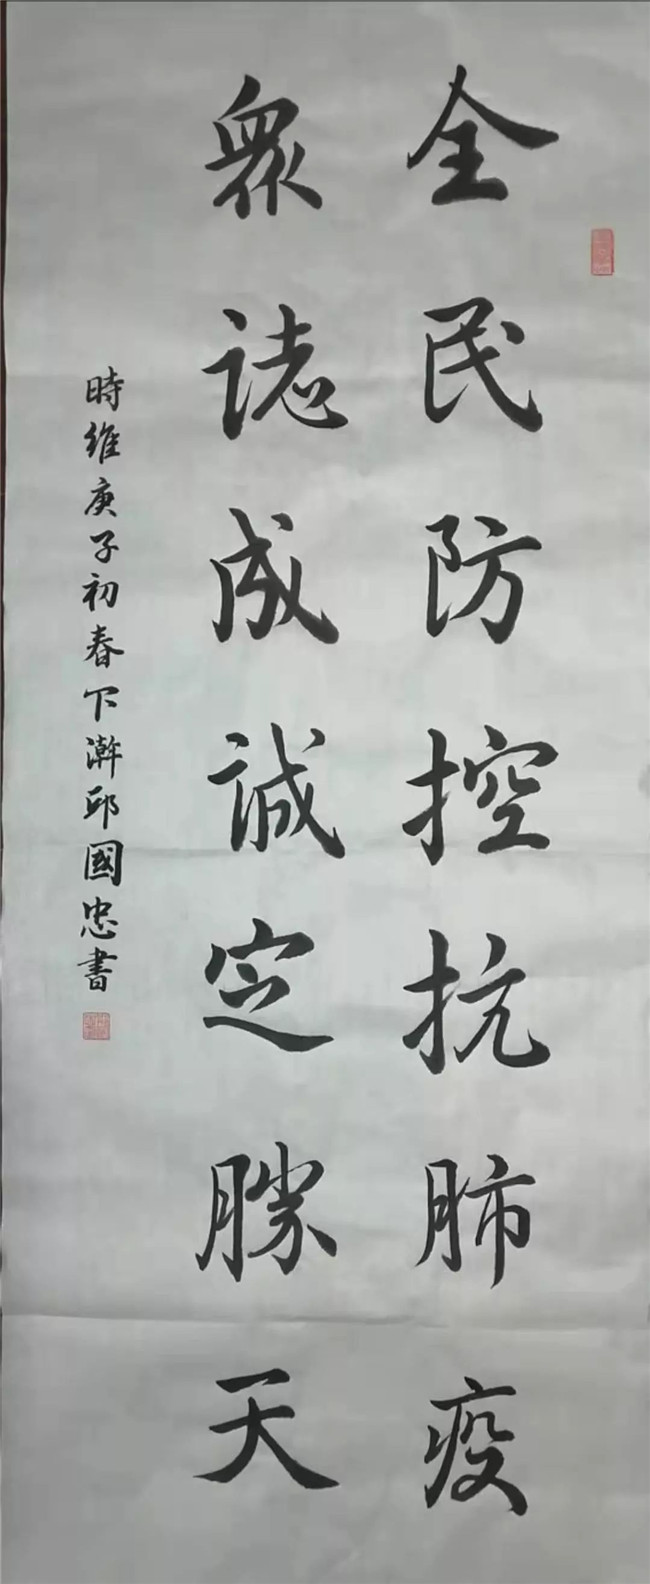 全民防控抗肺疫
衆誌成誠定勝天
時維庚子初春下澣邱國忠書